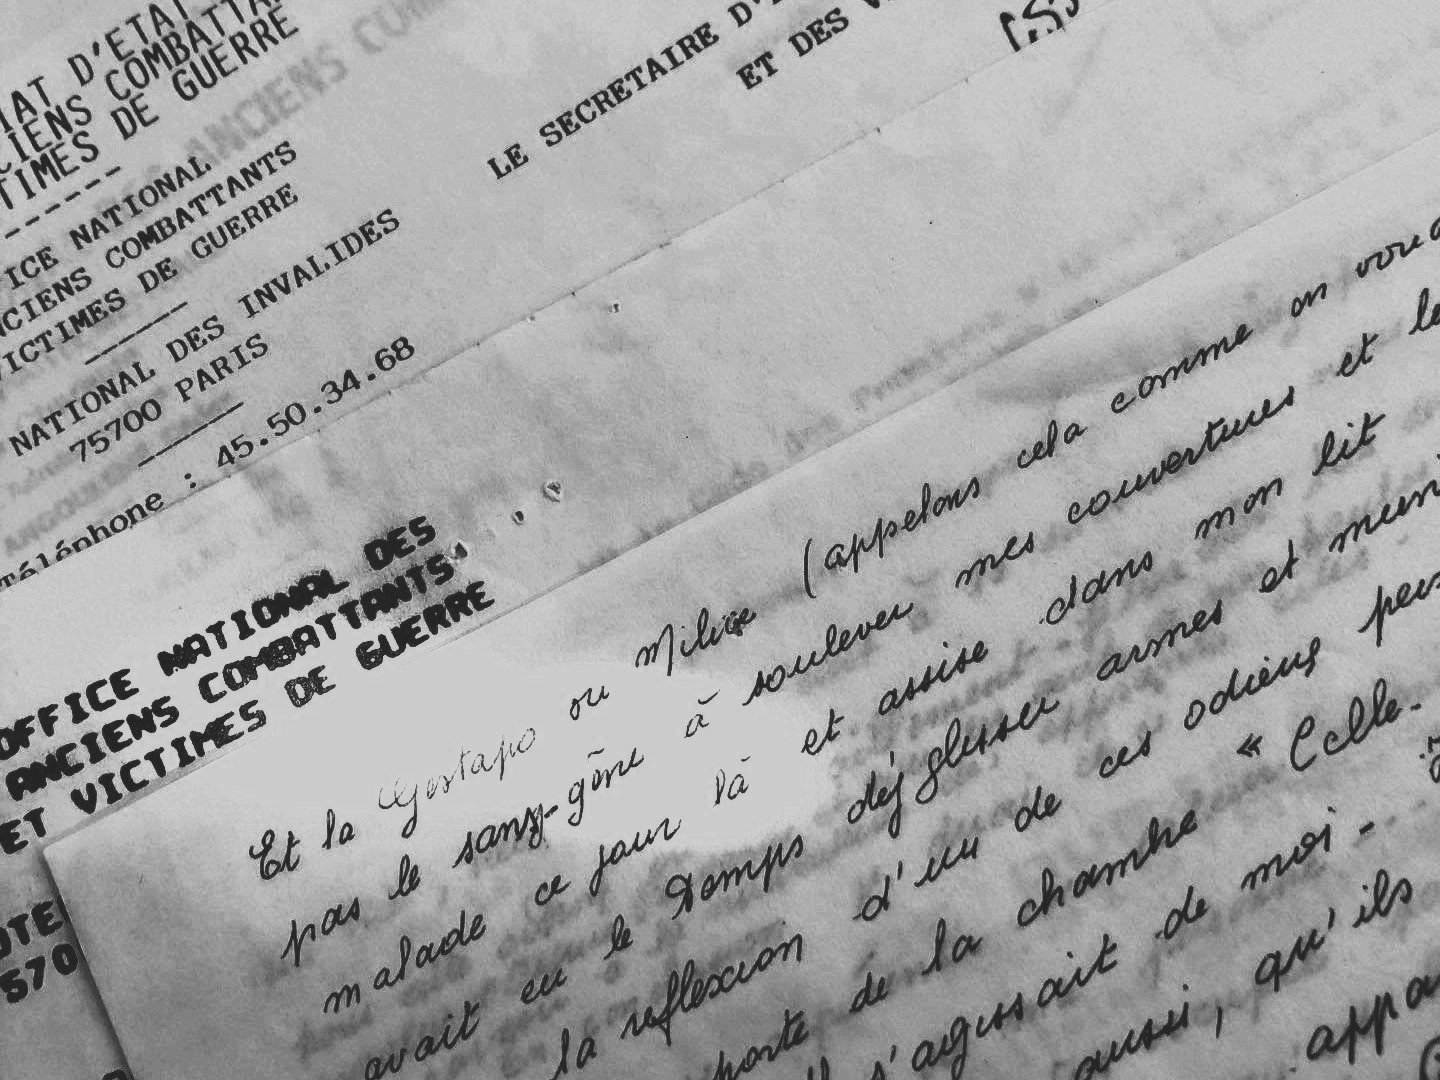 D'ETAT
ANCIENS COMBATTA
TIMES DE GUERRE
ANCIENS COM
ICE NATIONAL
NCIENS COMBATTANTS
VICTIMES DE GUERRE
NATIONAL DES INVALIDES
75700 PARIS
Téléphone : 45.50.34.68
LE SECRETAIRE D'
ET DES V
OFFICE NATIONAL DES
ANCIENS COMBATTANTS
ET VICTIMES DE GUERRE
OTE
570
Et la Gestapo ou Milice (appelons cela comme on voud
pas le sans-gêne à soulever mes couvertures et le
malade ce jour là et assise dans mon lit
avait eu le temps déj glisser armes et muni
la reflexion d'un de ces odieux pers
porte de la chambre « Celle-
s'agissait de moi -
aussi, qu'ils
appa